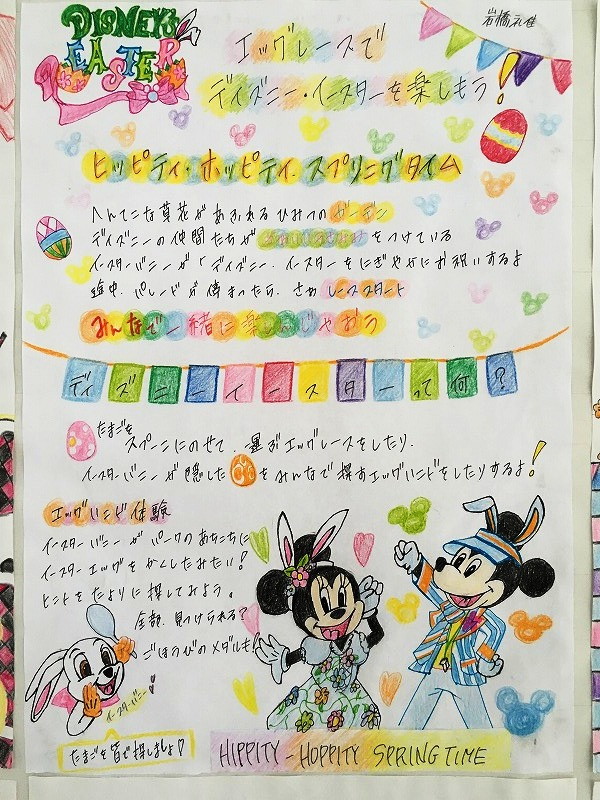 DISNEY's
EASTER
岩橋 礼佳
エッグレースで
ディズニー・イースターを楽しもう!
ヒッピティ・ホッピティ・スプリングタイム
へんてこな草花があふれるひみつのガーデン
ディズニーの仲間たちが をつけている
イースターバニーが「ディズニー・イースターをにぎやかにお祝いするよ
途中、パレードが停まったら、さあ レーススタート
みんなで一緒に楽しんじゃおう
ディズニーイースターって何?
たまごを
スプーンにのせて、運ぶエッグレースをしたり、
イースターバニーが隠した をみんなで探すエッグハントをしたりするよ!
エッグハント体験
イースターバニーがパークのあちこちに
イースターエッグをかくしたみたい!
ヒントをたよりに探してみよう。
全部、見つけられる?
ごほうびのメダルも
イースターバニー
たまごを皆で探しましょ♡
HIPPITY-HOPPITY SPRING TIME